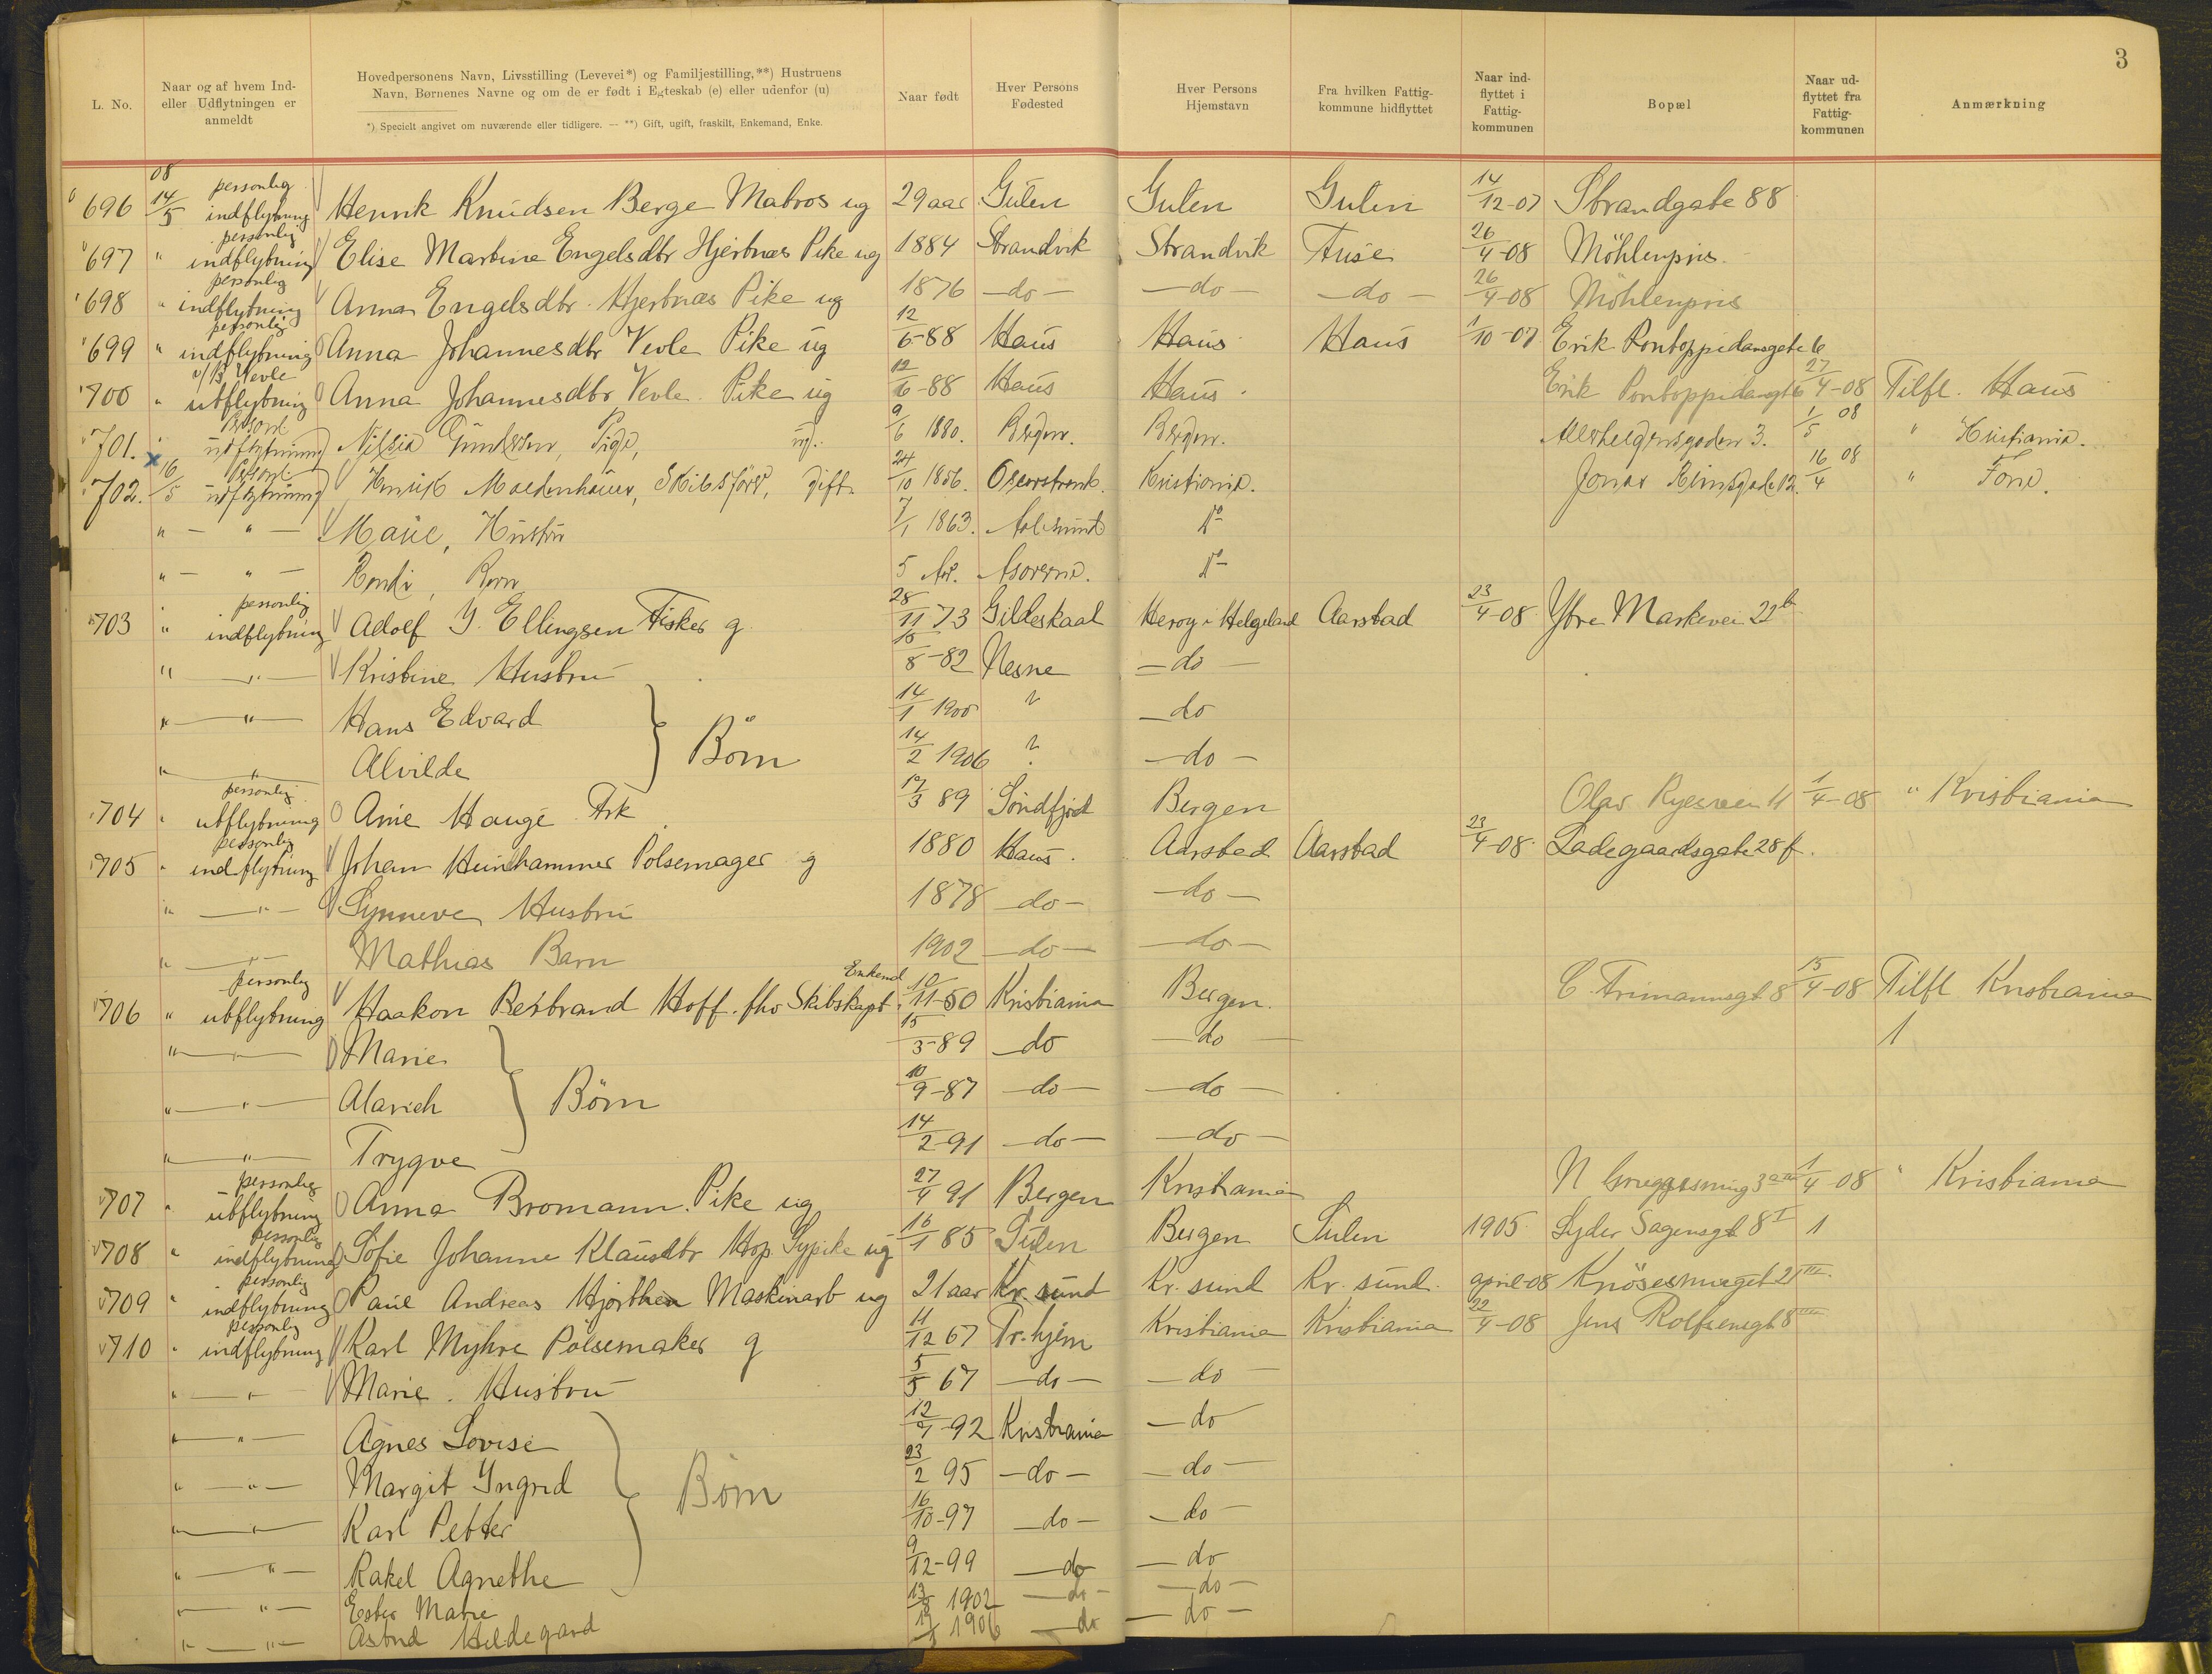 3
L. No. Naar og af hvem Ind- eller Udflytningen er anmeldt Hovedpersonens Navn, Livsstilling (Levevei*) og Familjestilling,**) Hustruens Navn, Børnenes Navne og om de er født i Egteskab (e) eller udenfor (u) Naar født Hver Persons Fødested Hver Persons Hjemstavn Fra hvilken Fattig-kommune hidflyttet Naar ind-flyttet i Fattig-kommunen Bopæl Naar ud-flyttet fra Fattig-kommunen Anmærkning
*) Specielt angivet om nuværende eller tidligere. — **) Gift, ugift, fraskilt, Enkemand, Enke.
696 14/5 08 personlig indflytning Henrik Knudsen Berge Matros ug 29 aar Gulen Gulen Gulen 14/12-07 Strandgate 88
697 " personlig indflytning Elise Martine Engelsdtr Hjertnæs Pike ug 1884 Strandvik Strandvik Fuse 26/4-08 Möhlenpris
698 " personlig indflytning Anna Engelsdtr. Hjertnæs Pike ug 1876 -do- -do- -do- 26/4-08 Möhlenpris
699 " personlig indflytning Anna Johannesdtr Vevle Pike ug 12/6-88 Haus Haus Haus 1/10-07 Erik Pontoppidansgate 6
700 " v/ B. Vevle utflytning Anna Johannesdtr Vevle Pike ug 12/6-88 Haus Haus Erik Pontoppidansgt 6 27/4-08 Tilfl. Haus
701. " Personl udflytning Pige, ug. 9/6 1880. Bergen. Bergen. Allehelgensgaden 3. 1/5 08 " Kristiania.
702. 16/5 Personl udflytning Henrik Moldenhauer, Skibsfører, gift 24/10 1856. Kristiania. Jonas Reinsgade 12. 16/4 08 "
" — " — Marie, Hustru 7/1 1863. Aalesund do
" — " — Barn 5 Aar. do
703 " personlig indflytning Adolf J. Ellingsen Fisker g. 28/11 73 Gildeskaal Herøy i Helgeland Aarstad 23/4-08 Ytre Markevei 22b
" — " — Kristine Hustru 15/8-82 Nesne -do-
" — " — Hans Edvard } Börn 14/1 1900 " -do
" — " — Alvilde 14/2 1906 " -do-
704 " personlig utflytning Anie Hauge Frk 17/3 89 Söndfjord Bergen Olav Ryesvei 11 1/4-08 " Kristiania
705 " personlig indflytning Johan Heinhammer Pölsemager g 1880 Haus. Aarstad Aarstad 23/4-08 Ladegaardsgate 28 f.
" — " — Synneve Hustru 1878 -do- -do-
" — " — Mathias Barn 1902 -do- -do-
706 " personlig utflytning Haakon Hoff. fhv Skibskapt. Enkemd 10/11-50 Kristiania Bergen. 15/4-08 Tilfl Kristiania
" — " — Marie 15/3-89 -do -do- 1
" — " — Alarich } Börn 10/9-87 -do- -do-
" — " — Trygve 14/2-91 -do- -do-
707 " personlig utflytning Anna Bromann. Pike ug 27/4 91 Bergen Kristiania 1/4-08 " Kristiania
708 " personlig indflytning Sofie Johanne Klausdtr Hop. Sypike ug 16/1 85 Bergen 1905 Lyder Sagensgt 8 I 1
709 " personlig indflytning Paul Andreas Hjorthen Maskinarb ug 21 aar Kr. sund Kr. sund Kr. sund. april-08 Knösesmuget 21 III
710 " personlig indflytning Karl Myhre Pölsemaker g 11/12 67 Tr.hjem Kristiania Kristiania 22/4-08 Jens Rolfsensgt 8 III
" — " — Marie. Hustru 5/5 67 -do- -do
" — " — Agnes Lovise 12/4-92 Kristiania -do
" — " — Margit Ingrid } Börn 23/2 95 -do- -do-
" — " — Karl Petter 16/10-97 -do- -do-
" — " — Rakel Agnethe 9/12-99 -do -do
" — " — Ester Marie 13/8 1902 -do- -do-
" — " — Astrid Hildegard 1906 -do -do-